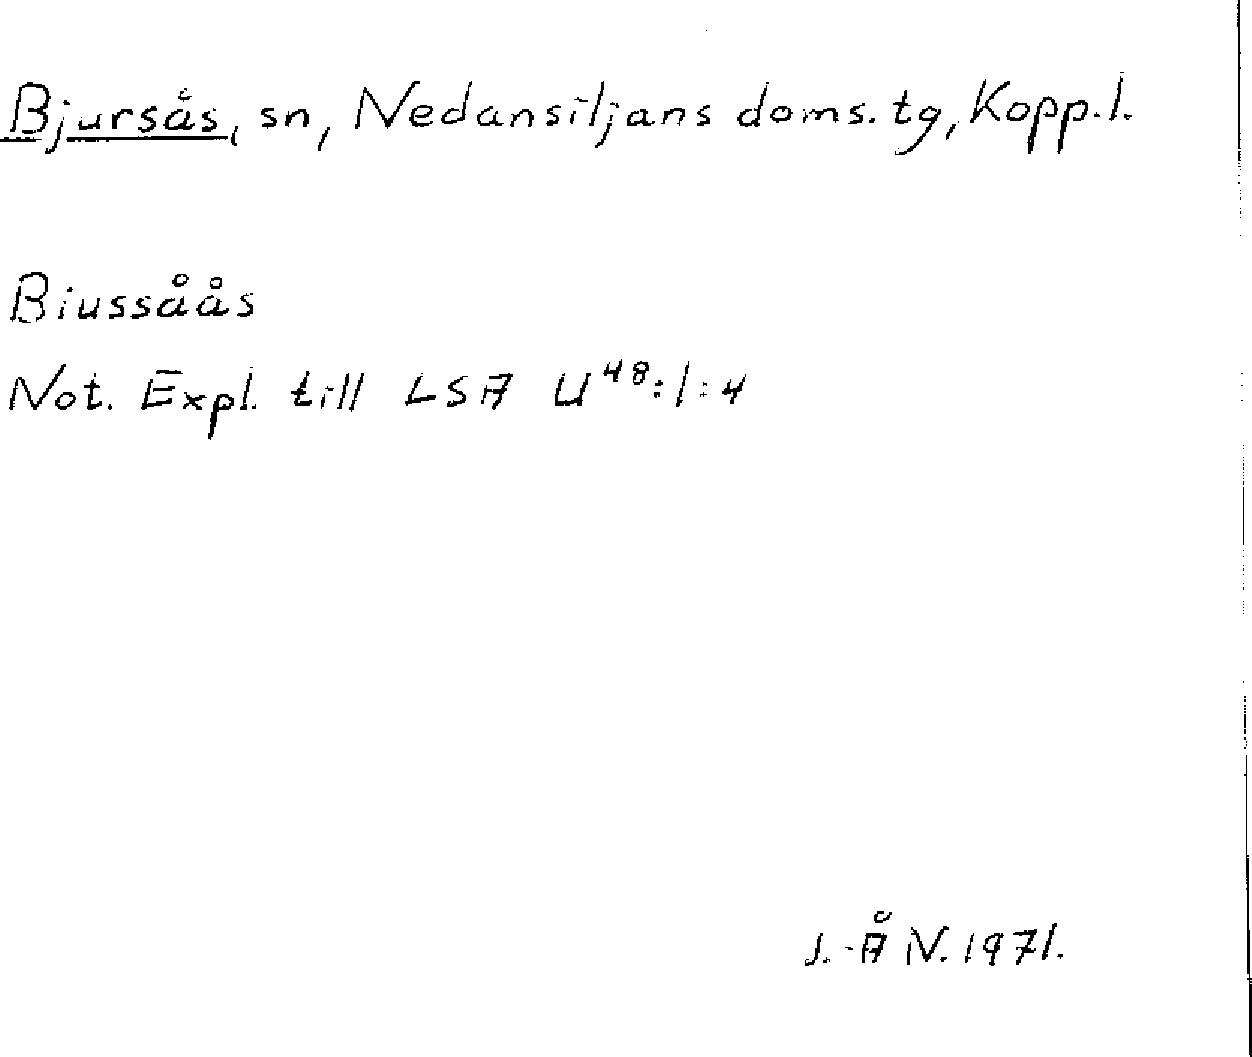 Bjursås, sn, Nedansiljans doms. tg, Kopp.l.
Biussåås
Not. Expl. till LSA U⁴⁸:1:4
J.-Å N. 1971.